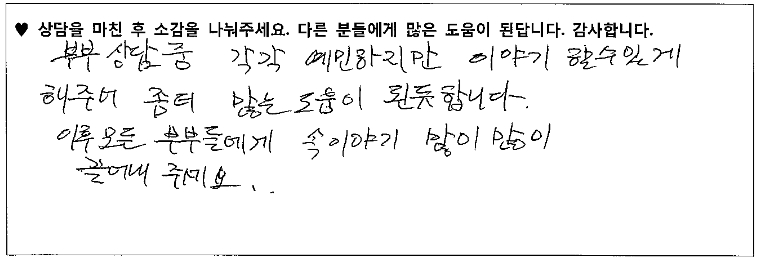 ♥ 상담을 마친 후 소감을 나눠주세요. 다른 분들에게 많은 도움이 된답니다. 감사합니다.
부부 상담중 각각 예민하지만 이야기 할수있게
해주어 좀더 많은 도움이 된듯합니다.
이후 모든 부부들에게 속이야기 많이 많이
끌어내 주세요..